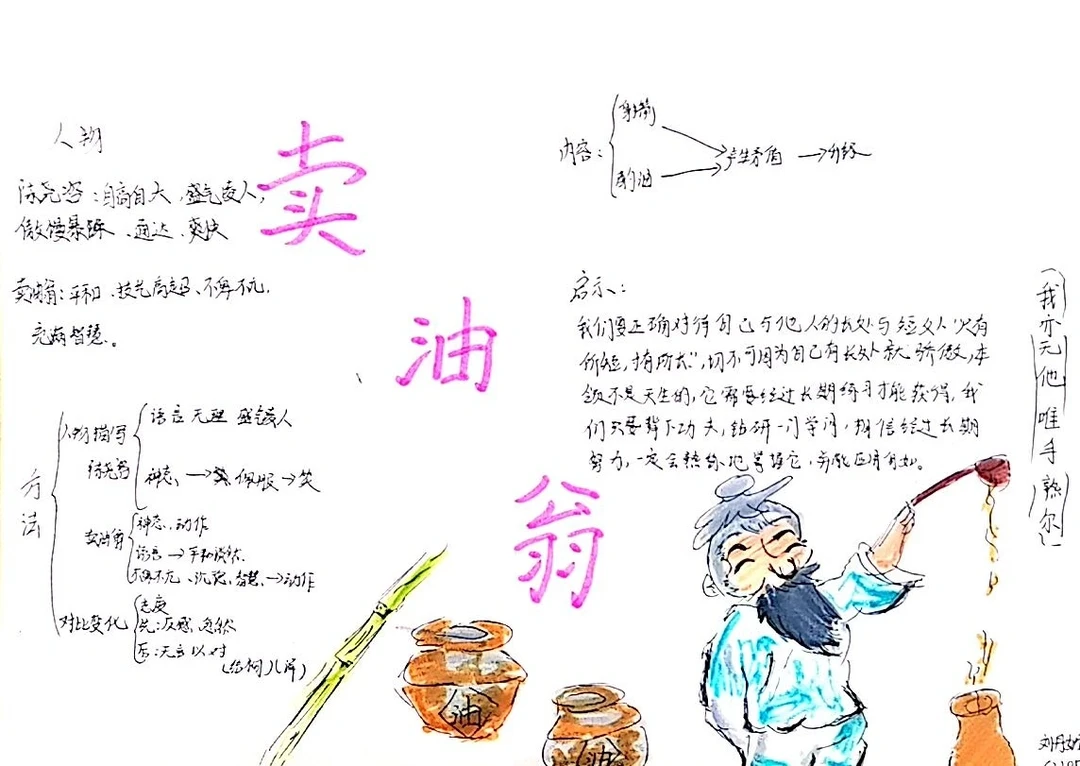 人物
陈尧咨：自高自大、盛气凌人，
傲慢暴躁、通达、爽快
卖油翁：平和、技艺高超、不卑不亢，
充满智慧。
卖
油
翁
内容：
射箭
酌油
产生矛盾
启示：
我们要正确对待自己与他人的长处与短处
切不可因为自己有长处就骄傲，本
领不是天生的，它需要经过长期练习才能获得，我
们只要肯下功夫，钻研一门学问，相信经过长期
努力，一定会熟练地掌握它
（我亦无他唯手熟尔）
方法
人物描写
陈尧咨
语言 无理 盛气凌人
神态 佩服→笑
卖油翁
神态、动作
语言→平和谈钱
不卑不亢、沉稳、智慧→动作
对比变化
态度
先：反感、忿然
后：无言以对
油
油